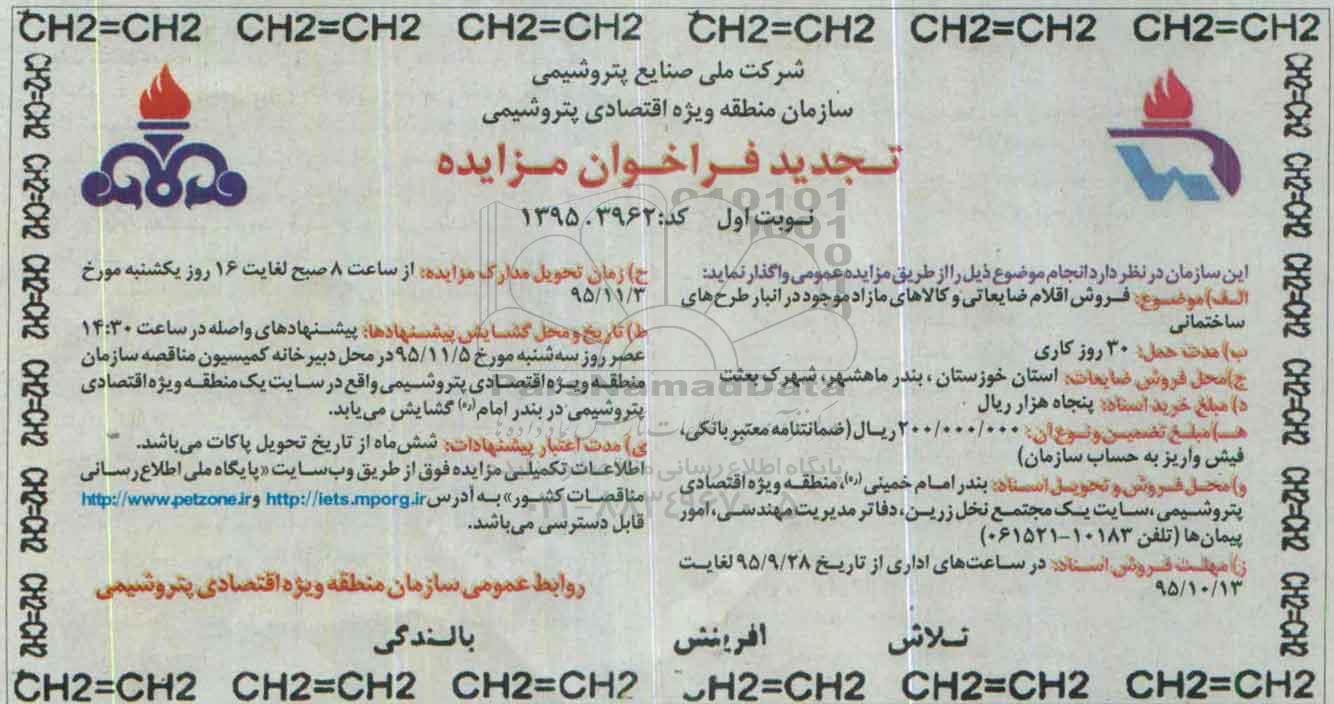 CH2=CH2 CH2=CH2 CH2=CH2 CH2=CH2 CH2=CH2 CH2=CH2
شرکت ملی صنایع پتروشیمی
سازمان منطقه ویژه اقتصادی پتروشیمی
تجدید فراخوان مزایده
نوبت اول کد: ۳۹۶۲. ۱۳۹۵
این سازمان در نظر دارد انجام موضوع ذیل را از طریق مزایده عمومی واگذار نماید:
الف) موضوع: فروش اقلام ضایعاتی و کالاهای مازاد موجود در انبار طرح‌های
ساختمانی
ب) مدت حمل: ۳۰ روز کاری
ج) محل فروش ضایعات: استان خوزستان، بندر ماهشهر، شهرک بعثت
د) مبلغ خرید اسناد: پنجاه هزار ریال
هـ) مبلغ تضمین و نوع آن: ۲۰۰/۰۰۰/۰۰۰ ریال (ضمانتنامه معتبر بانکی،
فیش واریز به حساب سازمان)
و) محل فروش و تحویل اسناد: بندر امام خمینی (ره)، منطقه ویژه اقتصادی
پتروشیمی، سایت یک مجتمع نخل زرین، دفاتر مدیریت مهندسی، امور
پیمان‌ها (تلفن ۱۰۱۸۳-۰۶۱۵۲۱)
ز) مهلت فروش اسناد: در ساعت‌های اداری از تاریخ ۹۵/۹/۲۸ لغایت
۹۵/۱۰/۱۳
ح) زمان تحویل مدارک مزایده: از ساعت ۸ صبح لغایت ۱۶ روز یکشنبه مورخ
۹۵/۱۱/۳
ط) تاریخ و محل گشایش پیشنهادها: پیشنهادهای واصله در ساعت ۱۴:۳۰
عصر روز سه‌شنبه مورخ ۹۵/۱۱/۵ در محل دبیرخانه کمیسیون مناقصه سازمان
منطقه ویژه اقتصادی پتروشیمی واقع در سایت یک منطقه ویژه اقتصادی
پتروشیمی در بندر امام (ره) گشایش می‌یابد.
ی) مدت اعتبار پیشنهادات: شش ماه از تاریخ تحویل پاکات می‌باشد.
اطلاعات تکمیلی مزایده فوق از طریق وب سایت «پایگاه ملی اطلاع رسانی
مناقصات کشور» به آدرس http://iets.mporg.ir و http://www.petzone.ir
قابل دسترسی می‌باشد.
روابط عمومی سازمان منطقه ویژه اقتصادی پتروشیمی
تلاش آفرینش بالندگی
CH2=CH2 CH2=CH2 CH2=CH2 CH2=CH2 CH2=CH2 CH2=CH2
CH2=CH2 CH2=CH2 CH2=CH2 CH2=CH2 CH2=CH2 CH2=CH2
CH2=CH2 CH2=CH2 CH2=CH2 CH2=CH2 CH2=CH2 CH2=CH2
ParsNamadData
پایگاه اطلاع رسانی
۰۲۱-۸۸۳۴۹۶۷۰-۵